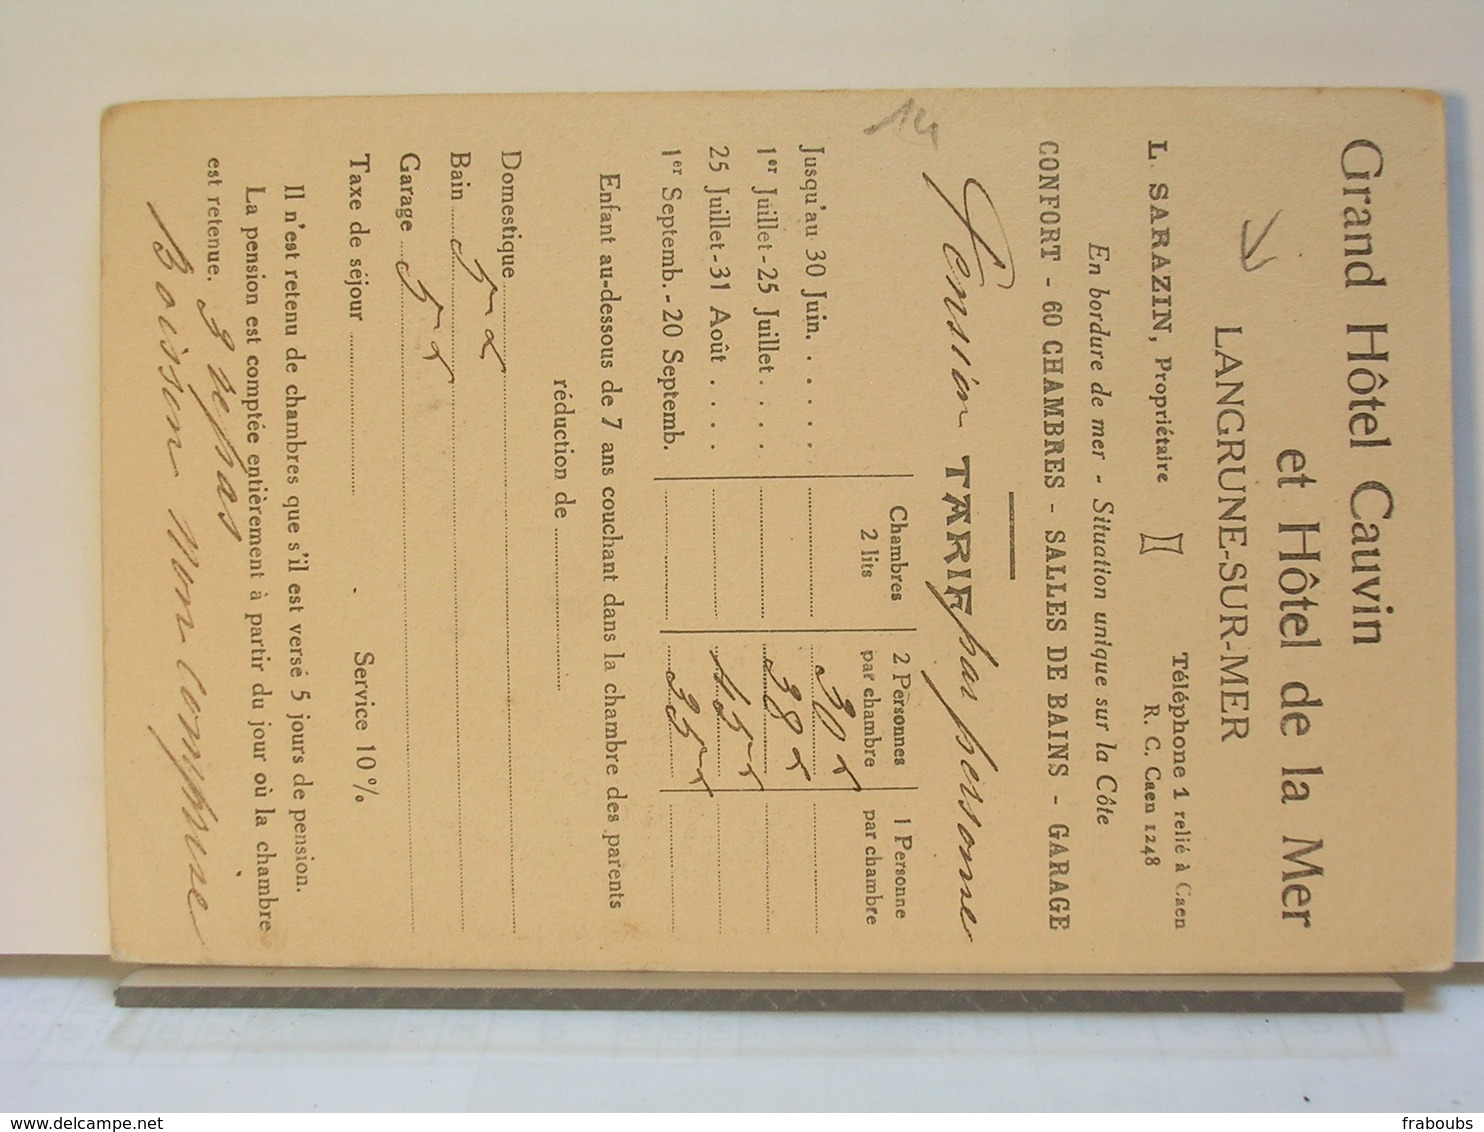 Grand Hôtel Cauvin
et Hôtel de la Mer
LANGRUNE-SUR-MER
L. SARAZIN, Propriétaire
Téléphone 1 relié à Caen
R. C. Caen 1248
En bordure de mer - Situation unique sur la Côte
CONFORT - 60 CHAMBRES - SALLES DE BAINS - GARAGE
14
Pension TARIF par personne
Chambres 2 lits
2 Personnes par chambre
1 Personne par chambre
Jusqu'au 30 Juin. . . . . 30
1er Juillet - 25 Juillet . . . . 38
25 Juillet - 31 Août . . . . 45
1er Septemb. - 20 Septemb. 35
Enfant au-dessous de 7 ans couchant dans la chambre des parents
réduction de
Domestique
Bain 5
Garage 5
Taxe de séjour Service 10%
Il n'est retenu de chambres que s'il est versé 5 jours de pension.
La pension est comptée entièrement à partir du jour où la chambre
est retenue. 3 repas
Boisson non comprise
delcampe.net
fraboubs